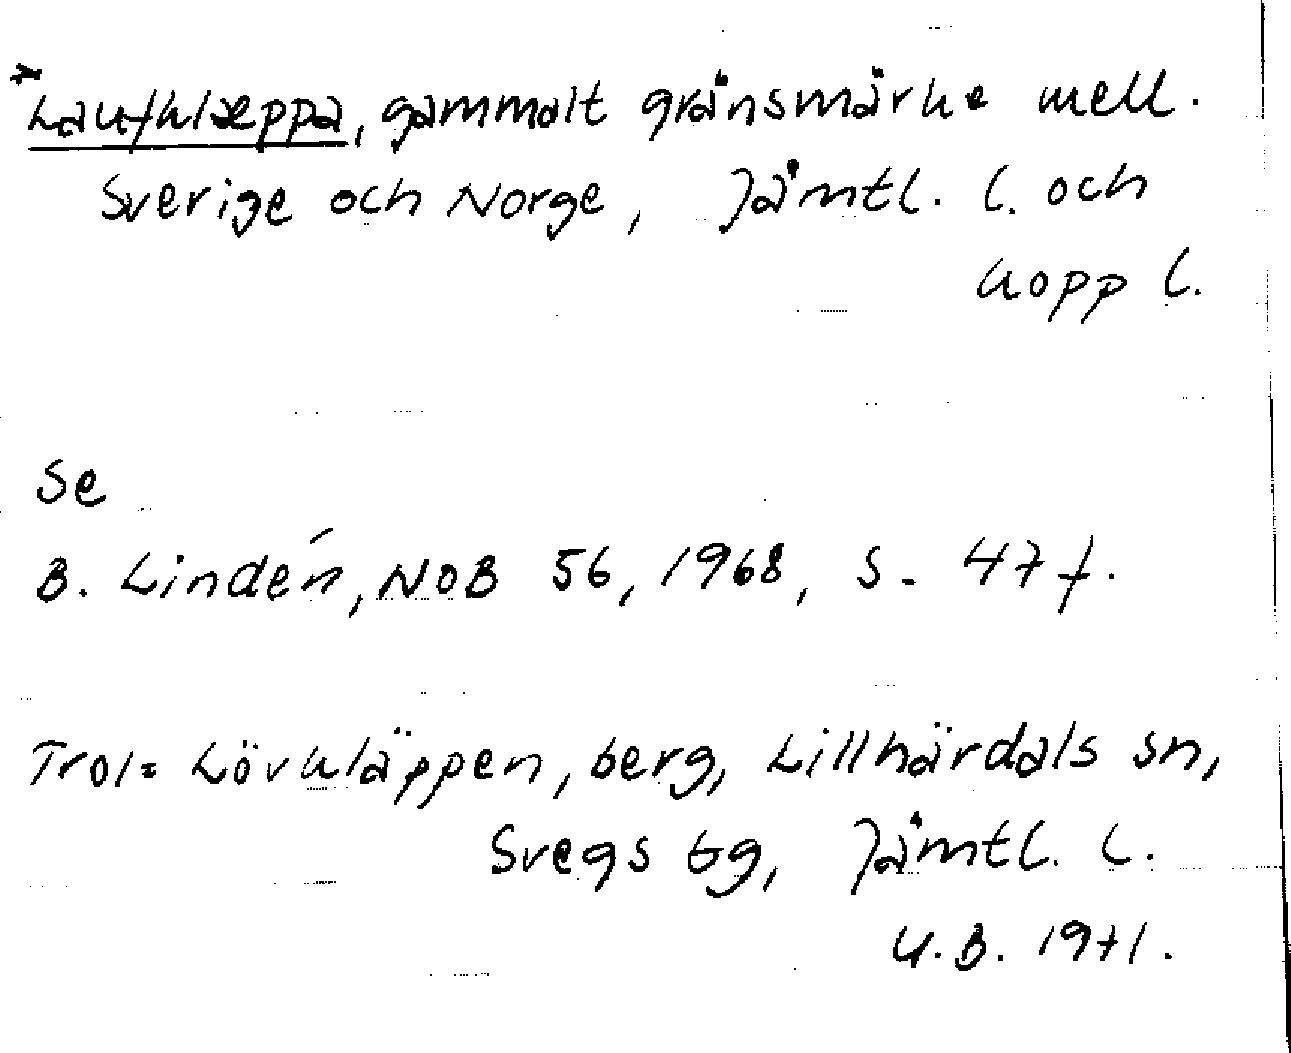 *Laufklæppa, gammalt gränsmärke mell.
Sverige och Norge, Jämtl. l. och
Kopp l.
Se
B. Lindén, NoB 56, 1968, s. 47 f.
Trol= Lövkläppen, berg, Lillhärdals sn,
Svegs tg, Jämtl. l.
U.B. 1971.